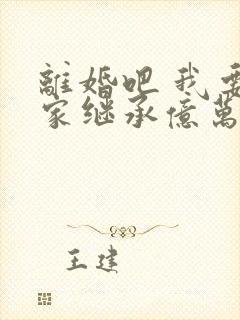 離婚吧 我要
家继承億萬
王建